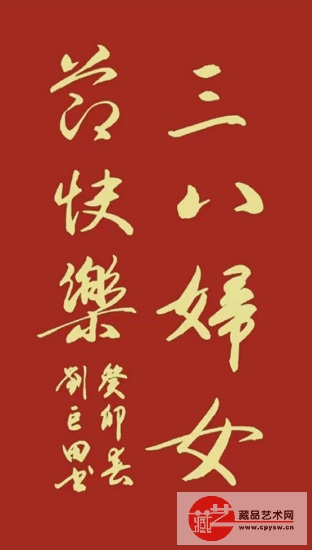 三八婦女
節快樂
癸卯春
劉巨田書
藏
藏品艺术网
www.cpysw.cn